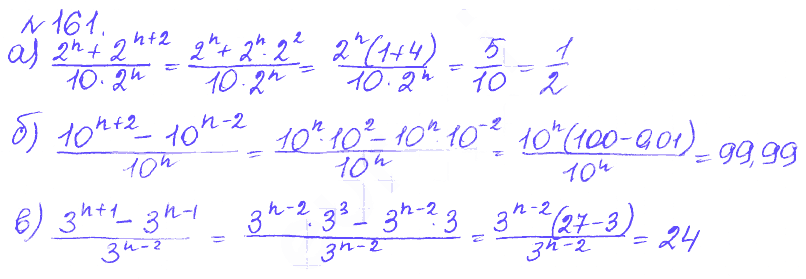 №161.
а) (2ⁿ + 2ⁿ⁺²)/(10·2ⁿ) = (2ⁿ + 2ⁿ·2²)/(10·2ⁿ) = (2ⁿ(1+4))/(10·2ⁿ) = 5/10 = 1/2
б) (10ⁿ⁺² − 10ⁿ⁻²)/10ⁿ = (10ⁿ·10² − 10ⁿ·10⁻²)/10ⁿ = (10ⁿ(100−0,01))/10ⁿ = 99,99
в) (3ⁿ⁺¹ − 3ⁿ⁻¹)/3ⁿ⁻² = (3ⁿ⁻²·3³ − 3ⁿ⁻²·3)/3ⁿ⁻² = (3ⁿ⁻²(27−3))/3ⁿ⁻² = 24